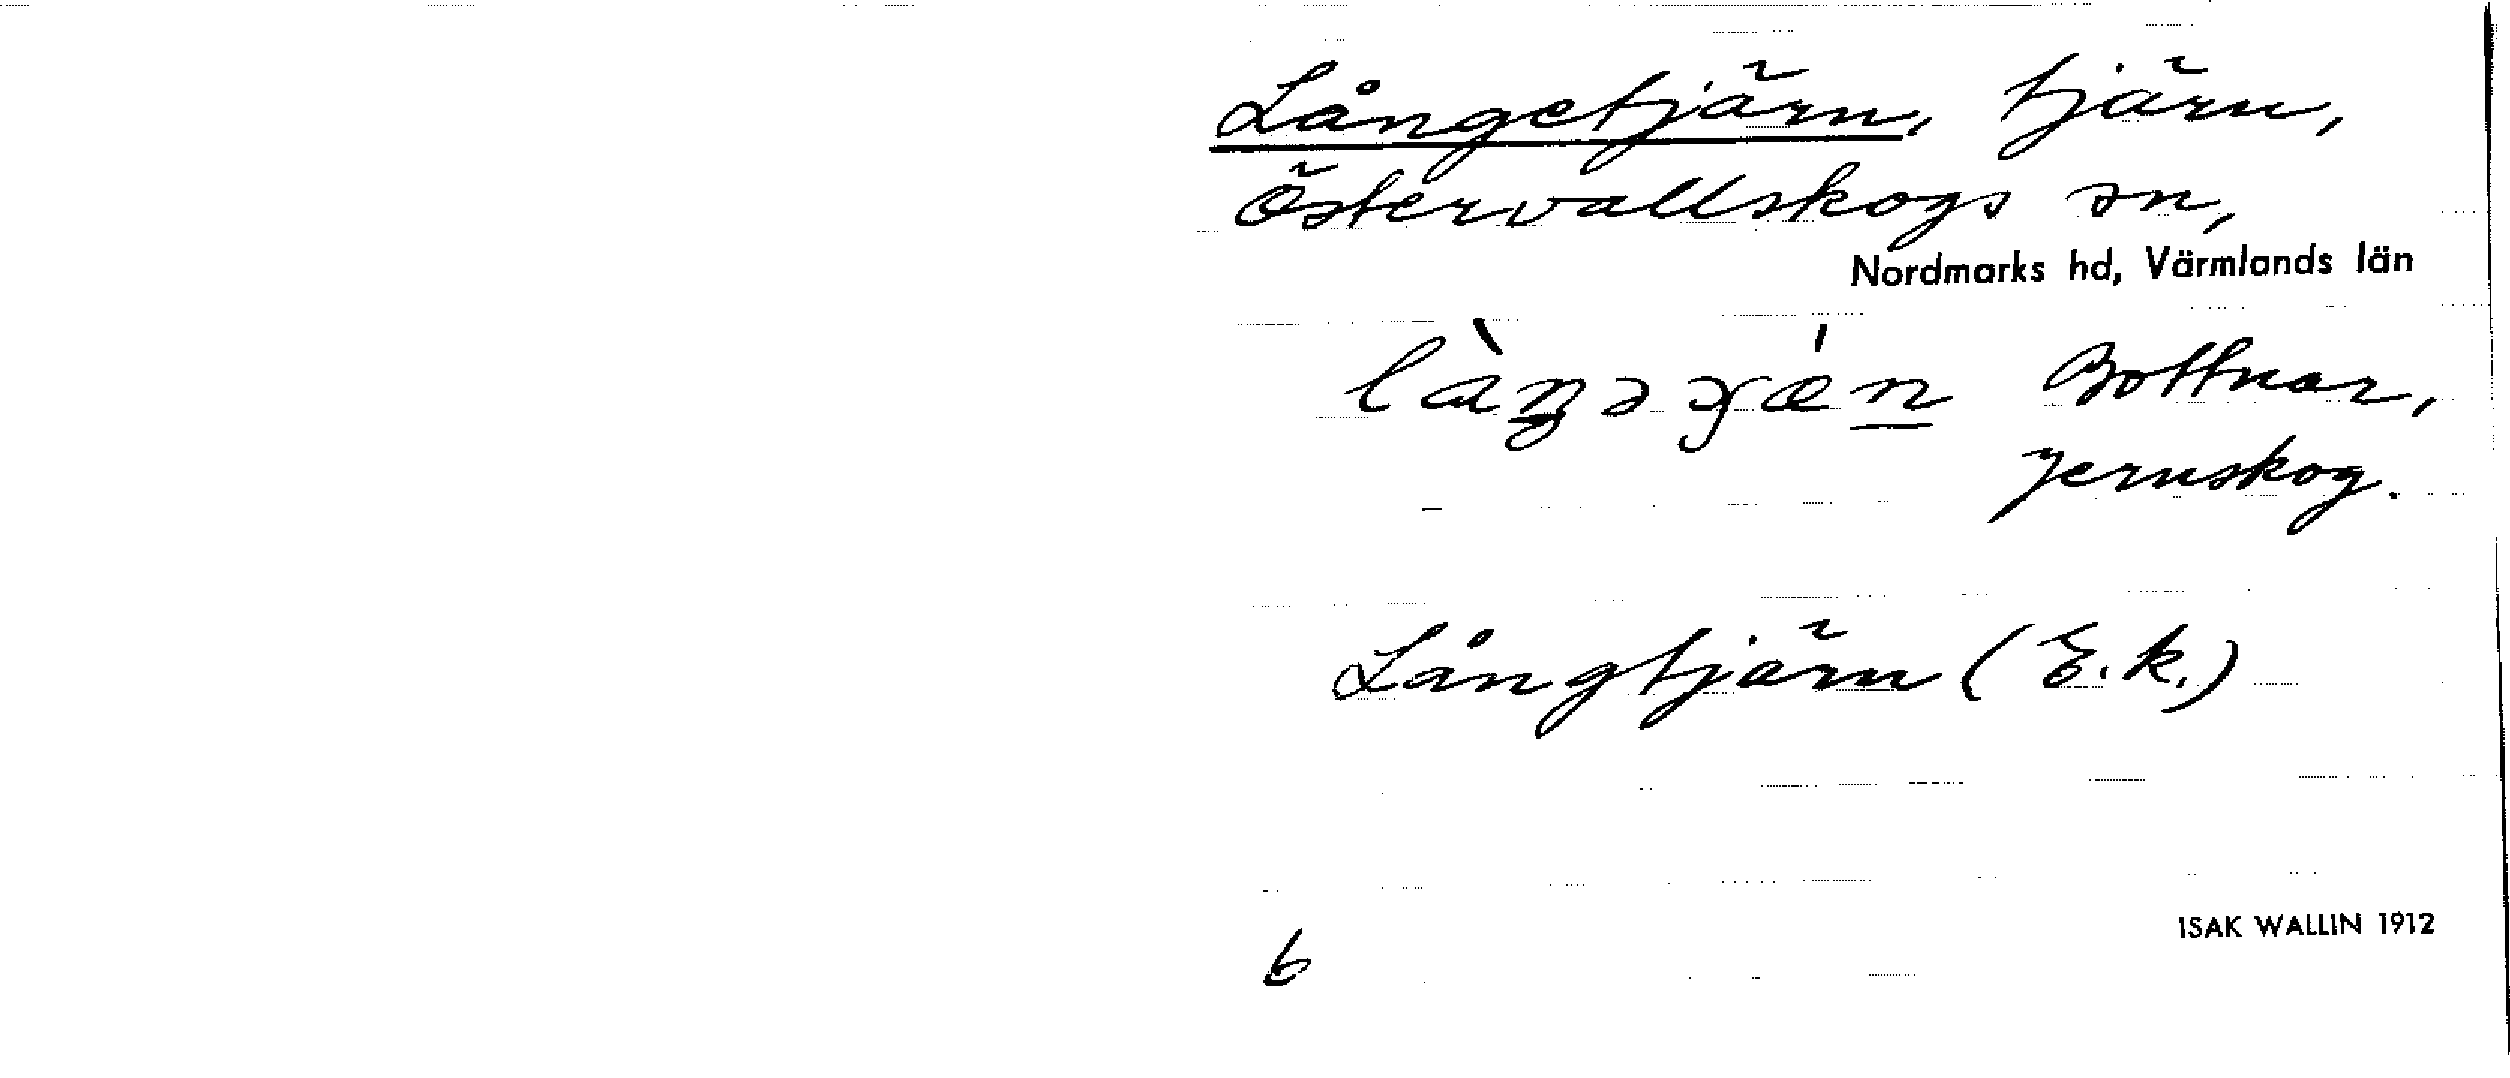 Långetjärn, tjärn,
Östervallskogs sn,
Nordmarks hd, Värmlands län
Bottnar,
Jernskog.
Långtjärn (E.k.)
6
ISAK WALLIN 1912